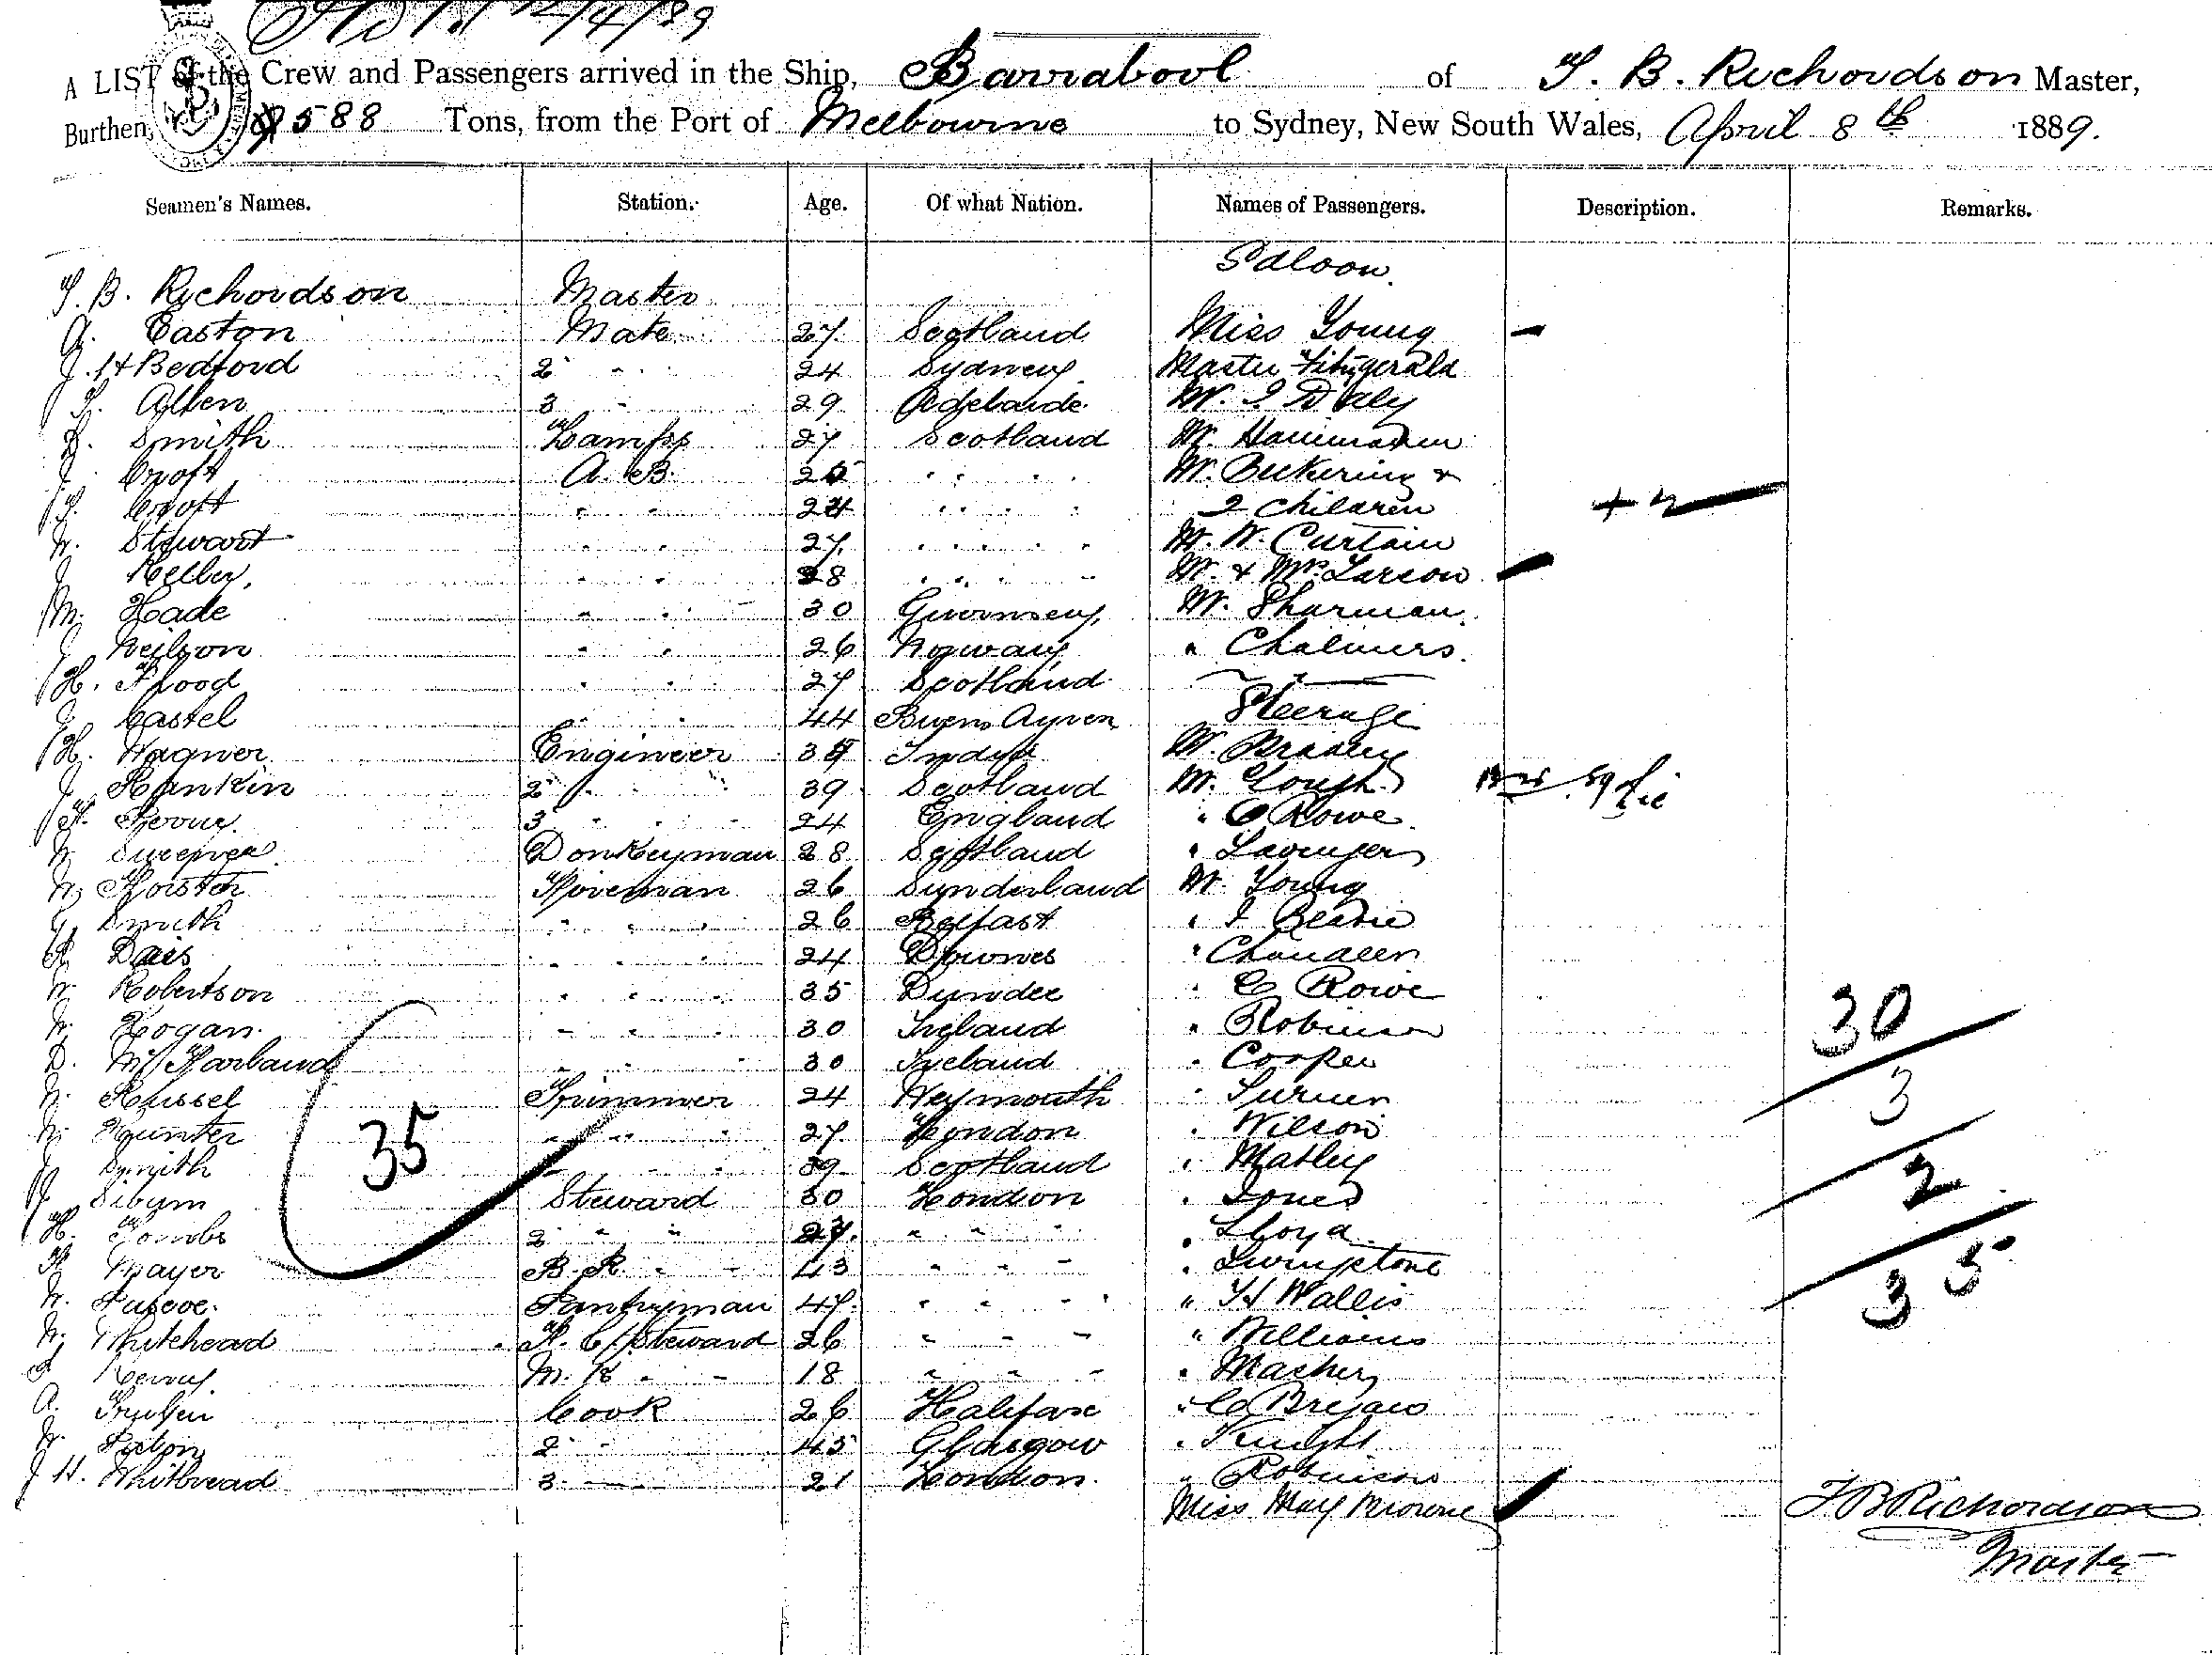 12/4/89
A LIST of the Crew and Passengers arrived in the Ship, Barrabool of T. B. Richardson Master,
Burthen, 588 Tons, from the Port of Melbourne to Sydney, New South Wales, April 8th 1889.
Seamen's Names. Station. Age. Of what Nation. Names of Passengers. Description. Remarks.
Saloon.
T. B. Richardson Master
A. Easton Mate 27 Scotland Miss Young
J. H Bedford 2 " " 24 Sydney Master Fitzgerald
Allen 3 " 29 Adelaide Mr. Daly
Smith Lamps 27 Scotland Mr.
J Croft A. B. 25 " " Mr. Pickering &
Croft " " 24 " " 2 children + 2
W. Stewart " " 27 " " Mr. W. Curtain
J Kelley " " 28 " " Mr. & Mrs Larson
M. Hade " " 30 Guernsey Mr. Sharman
J Neilson " " 26 Norway " Chalmers.
H. Flood " " 27 Scotland
J Castel " " 44 Buens Ayres Steerage
H. Wagner Engineer India Mr. Bradley
J Rankin 2 " " 39 Scotland Mr. Gough
3 " " 24 England " C Rowe
W. Donkeyman 28 Scotland "
W. Fireman 26 Sunderland Mr. Young
G. Smith " " 26 Belfast " J
Dais " " 24 "
W. Robertson " " 35 Dundee " C Rowe
W. Hogan " " 30 Ireland " Robinson 30
D. McFarland " " 30 Ireland " Cooper
W. Russel Trimmer 24 Weymouth " Turner 3
W. Hunter " " 27 London " Wilson
35
J Smith " " 39 Scotland " Matley
J Sibum Steward 30 London " Jones 2
H. Tombs 2 " " 27 " " " Lloyd
Mayer B. R. " " 43 " " " Livingstone 35
W. Pantryman 47 " " " Wallis
W. Whitehead F. C. Steward 26 " " " Williams
M. R " " 18 " " "
A. Cook 26 Halifax "
W. 2 " 45 Glasgow " Knight
J H. Whitbread 3 " 21 London " Robinson
Miss May Browne T B Richardson
Master